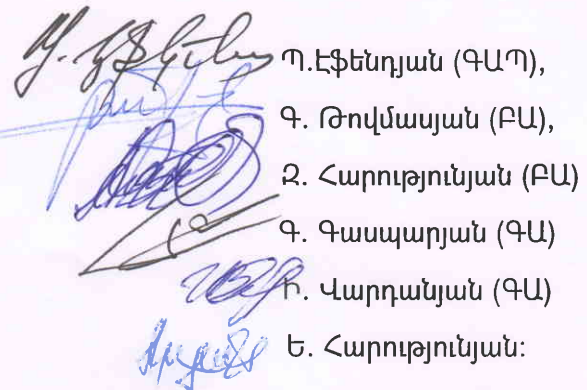 Պ.Էֆենդյան (ԳԱՊ),
Գ. Թովմասյան (ԲԱ),
Զ. Հարությունյան (ԲԱ)
Գ. Գասպարյան (ԳԱ)
Ի. Վարդանյան (ԳԱ)
Ե. Հարությունյան: